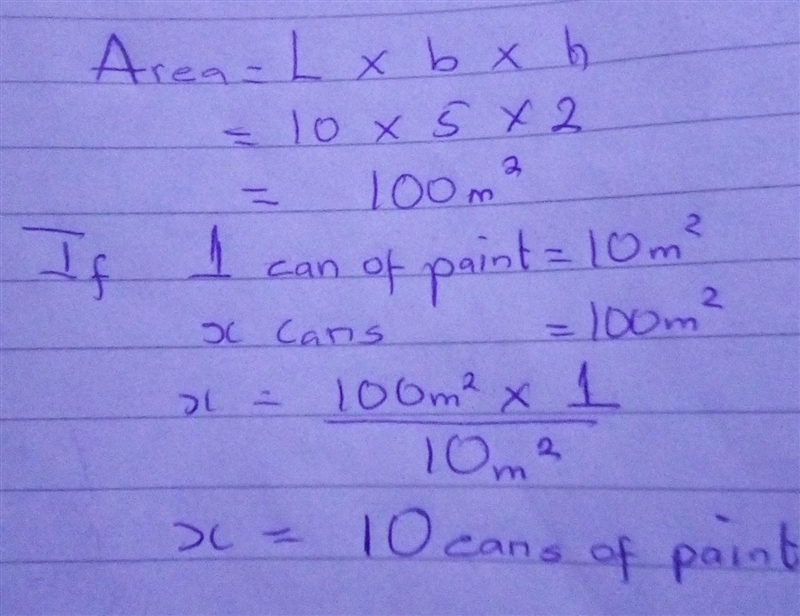 Area = L x b x h
= 10 x 5 x 2
= 100m²
If 1 can of paint = 10m²
x cans = 100m²
x = 100m² x 1
10m²
x = 10 cans of paint